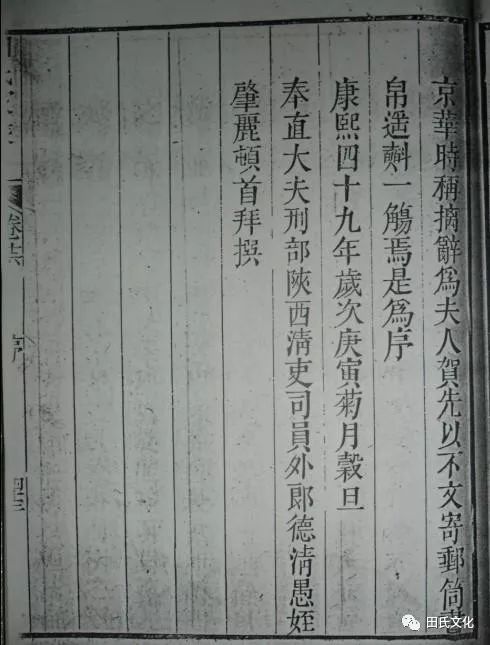 京華時稱摘辭為夫人賀先以不文寄郵筒書
帛遥斟一觴焉是為序
康熙四十九年歲次庚寅菊月穀旦
奉直大夫刑部陝西清吏司員外郎德清愚姪
肇麗頓首拜撰
序
田氏文化